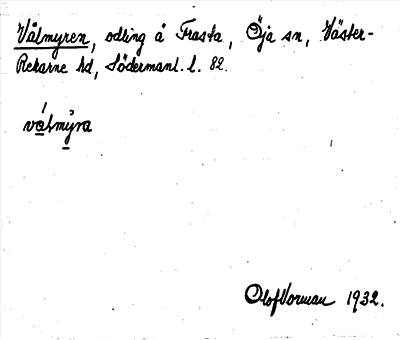 Vålmyren, odling å Frasta, Öja sn, Väster-
Rekarne hd, Södermanl. l. 82.
vålmyra
Olof Vorman 1932.